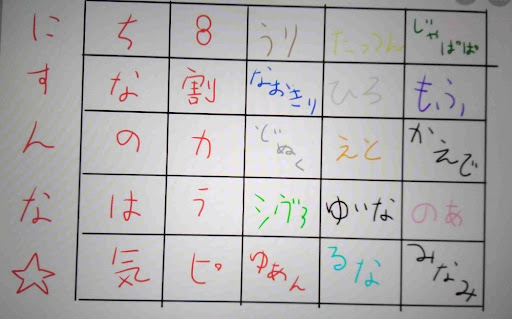 に ち 8 うり たっつん じゃぱぱ
す な 割 なおきり ひろ もふ
ん の カ どぬく えと かえで
な は う シヴぁ ゆいな のあ
☆ 気 ピ ゆあん るな みなみ